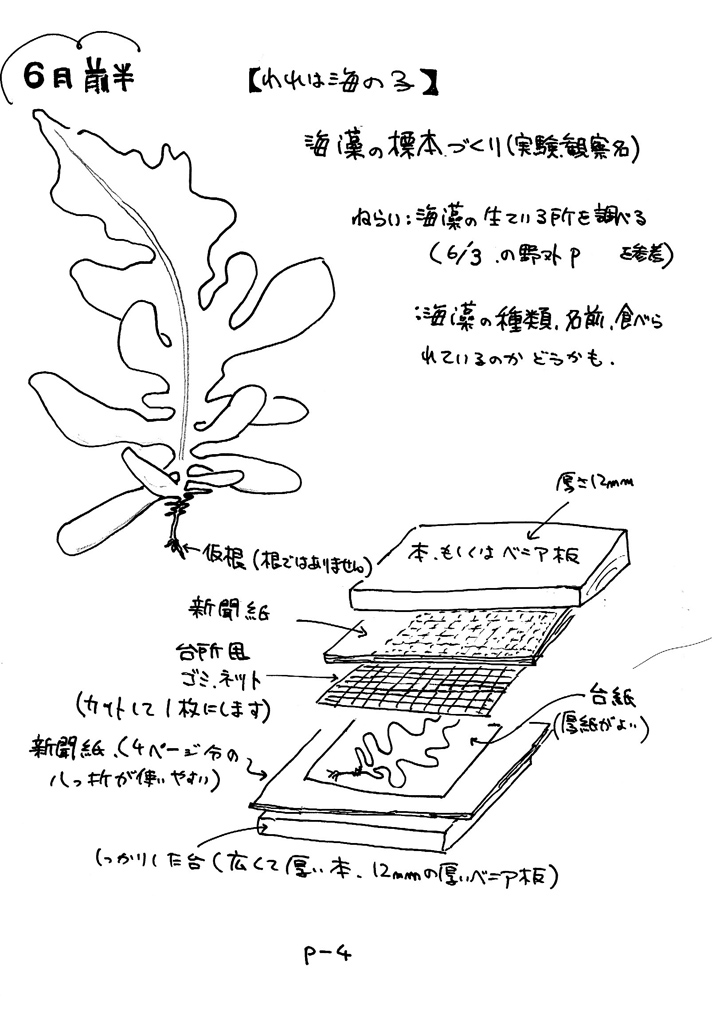 6月前半
【われは海の子】
海藻の標本づくり(実験観察名)
ねらい:海藻の生ている所を調べる
(6/3.の野外P を参考)
:海藻の種類.名前.食べら
れているのかどうかも.
厚さ12mm
本.もしくはベニア板
仮根(根ではありません)
新聞紙
台所用
ゴミ.ネット
(カットして1枚にします)
台紙
(厚紙がよい)
新聞紙.(4ページ分の
八っ折が使いやすい)
しっかりした台(広くて厚い本.12mmの厚いベニア板)
P-4